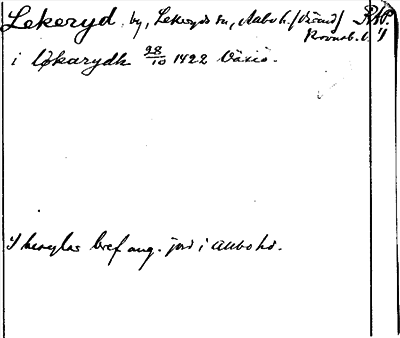 Lekeryd, by, Lekeryds sn, Aabo h. (Värend) RAp.
Kronob. l. 4
i løkarydh 28/10 1422 Växiö.
I beseglas bref ang. jord i Allbo hd.